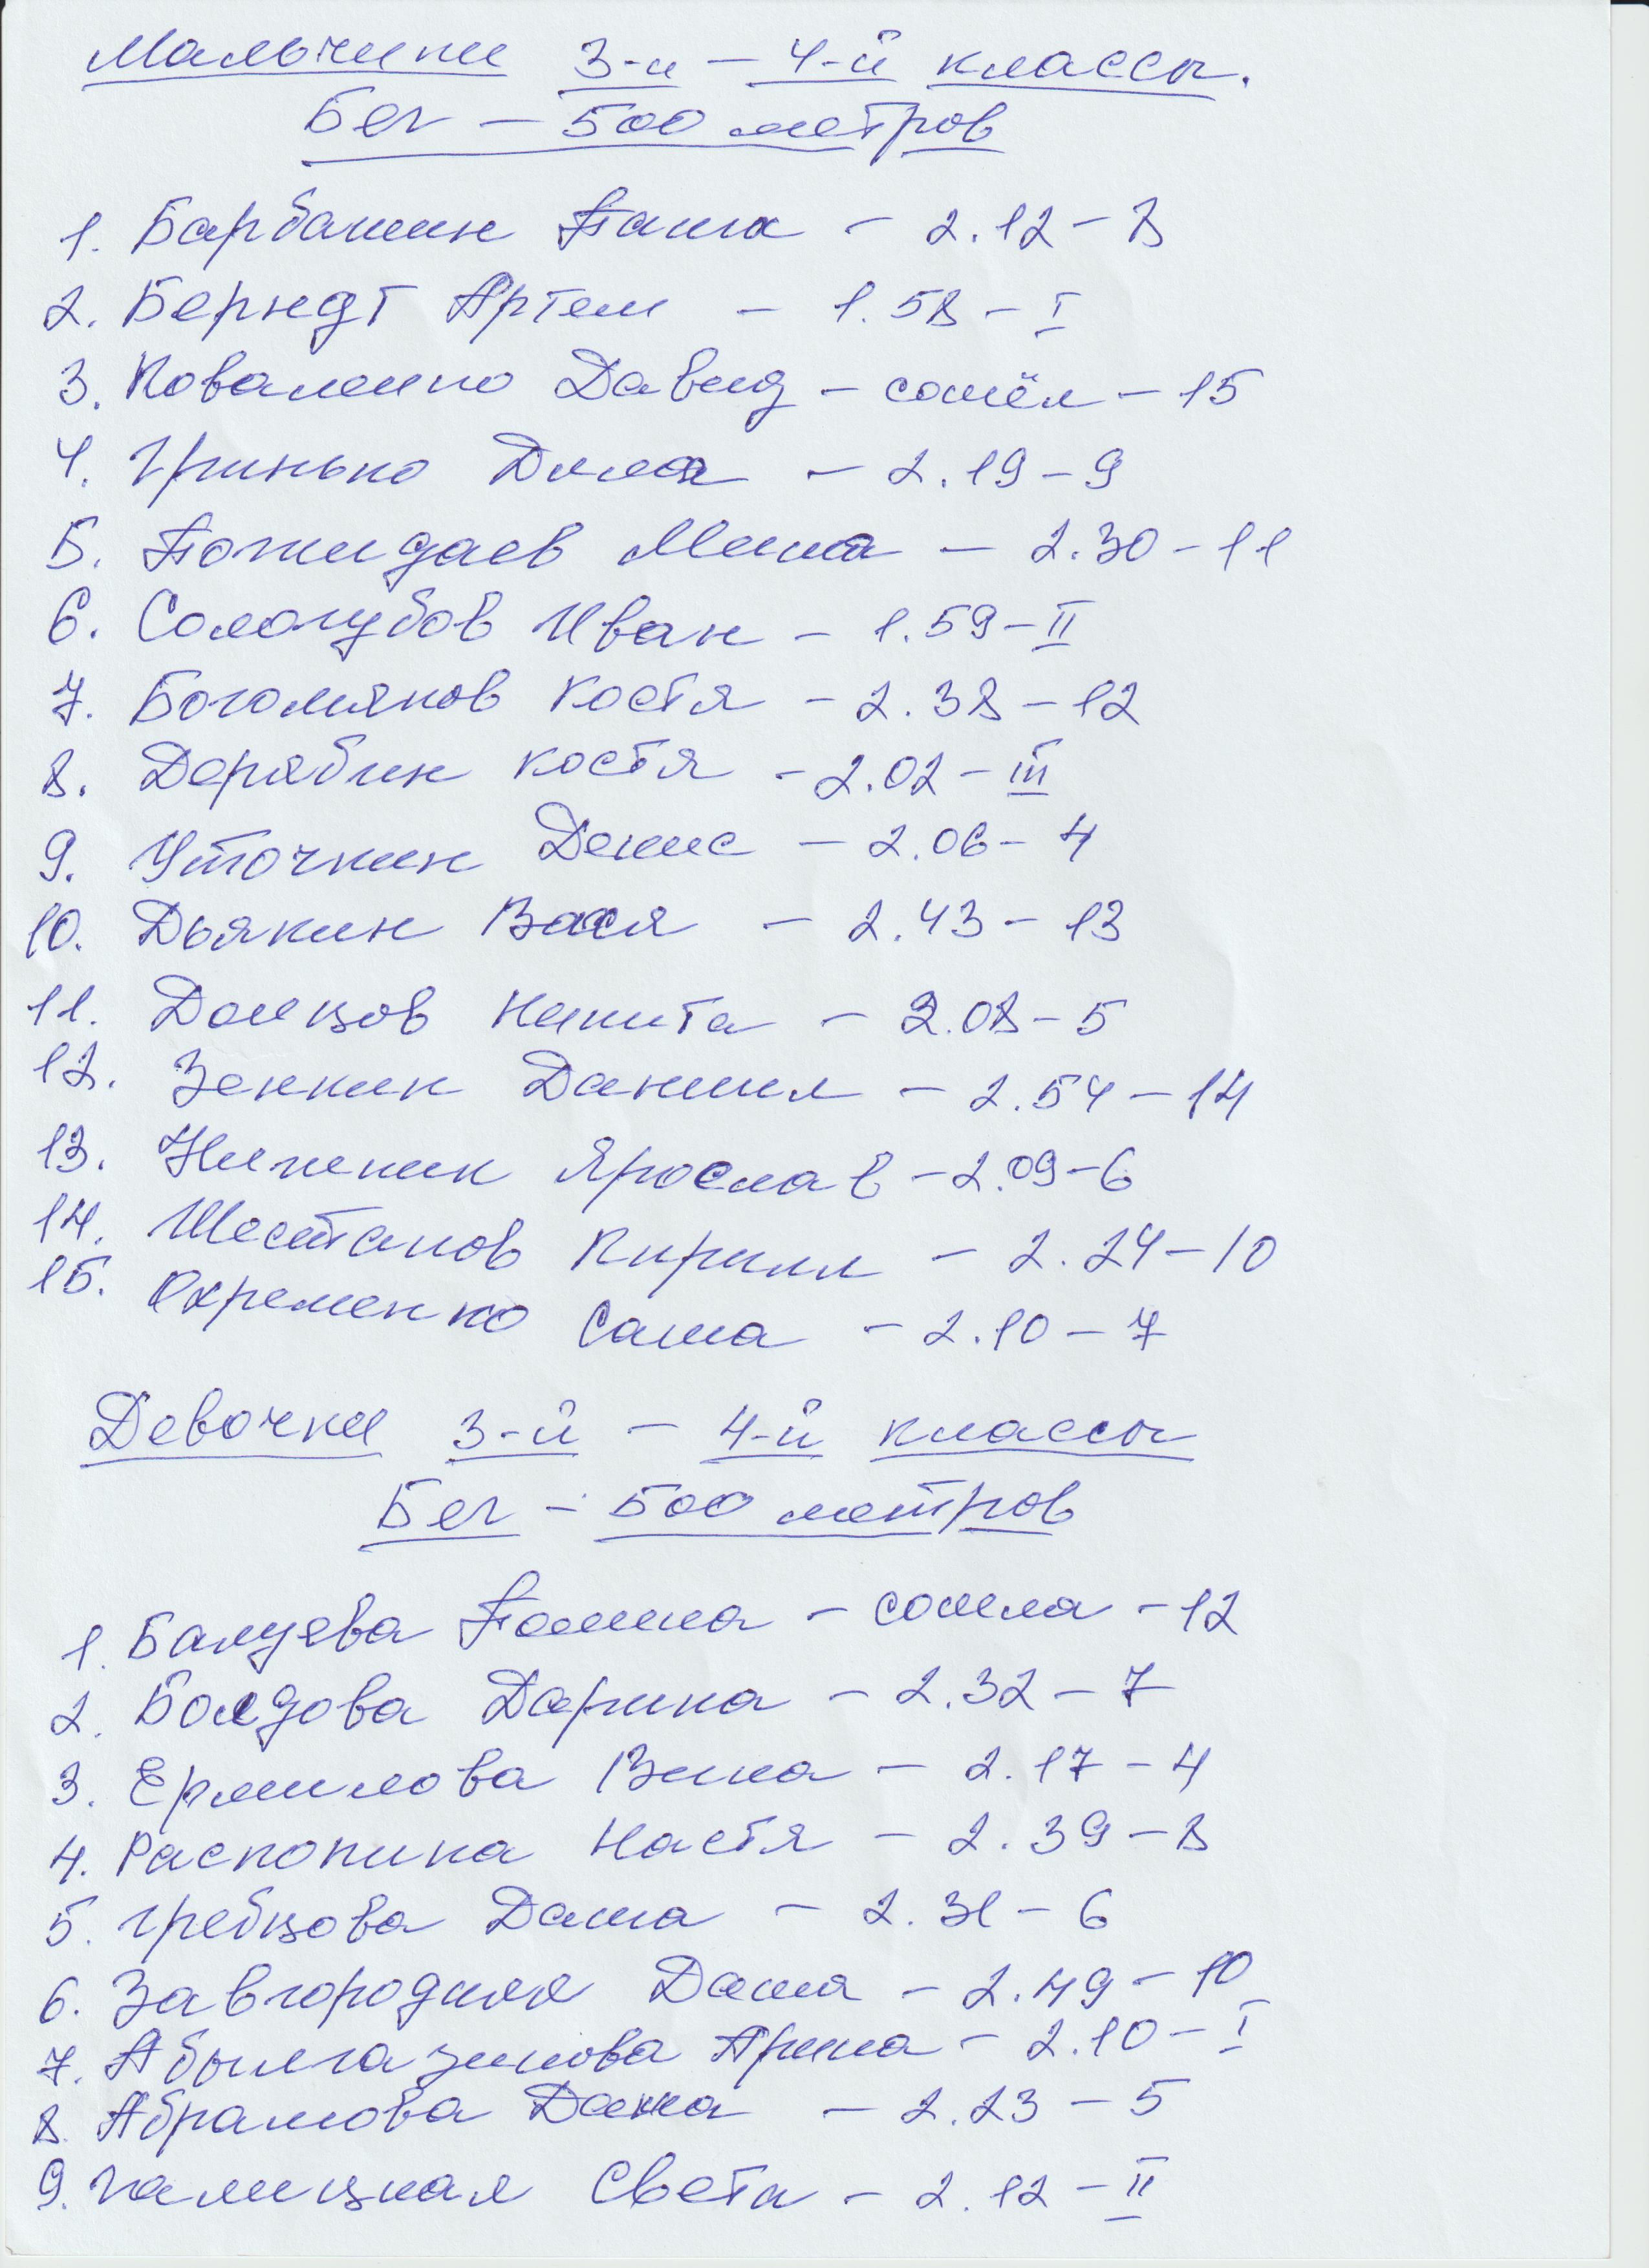 Мальчики 3-и – 4-й классы.
Бег – 500 метров
1. Барбашин Паша – 2.12 – 8
2. Берндт Артем – 1.58 – I
3. Коваленко Давид – сошёл – 15
4. Гринько Дима – 2.19 – 9
5. Пожидаев Миша – 2.30 – 11
6. Сологубов Иван – 1.59 – II
7. Богомяков Костя – 2.38 – 12
8. Дерябин Костя – 2.02 – III
9. Уточкин Денис – 2.06 – 4
10. Дьякин Вася – 2.43 – 13
11. Донцов Никита – 2.08 – 5
12. Зенкин Даниил – 2.54 – 14
13. Ярослав – 2.09 – 6
14. Шестаков Кирилл – 2.24 – 10
15. Охременко Саша – 2.10 – 7
Девочки 3-й – 4-й классы
Бег – 500 метров
1. Балуева Полина – сошла – 12
2. Болдова Дарина – 2.32 – 7
3. Ермилова Вика – 2.17 – 4
4. Распопина Настя – 2.39 – 8
5. Гребцова Даша – 2.31 – 6
6. Завгородняя Даша – 2.49 – 10
7. Абылгазинова Арина – 2.10 – I
8. Абрамова Дана – 2.23 – 5
9. Галицкая Света – 2.12 – II